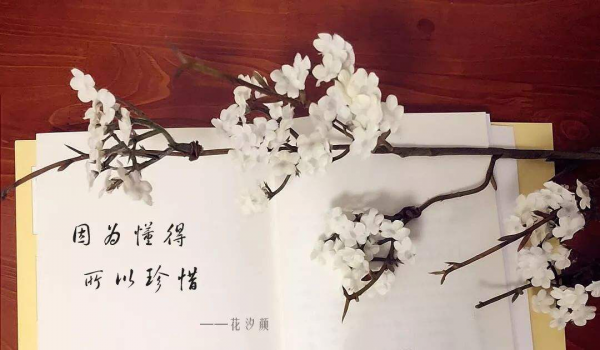 因为懂得
所以珍惜
——花汐颜